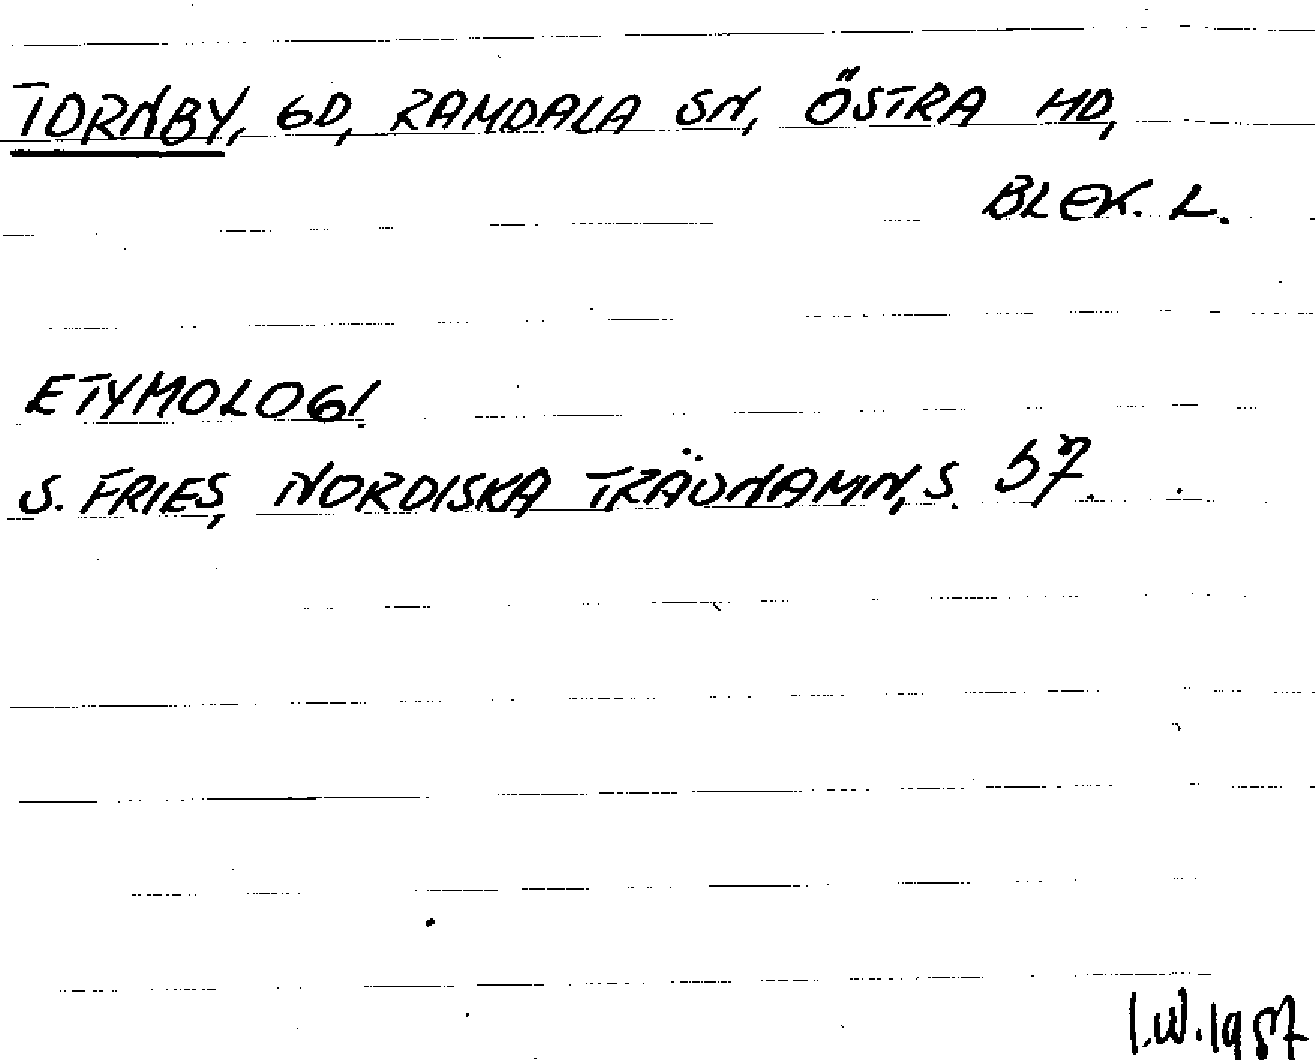 TORNBY, GD, RAMDALA SN, ÖSTRA HD,
BLEK. L.
ETYMOLOGI
S. FRIES, NORDISKA TRÄDNAMN, S. 37.
I.W. 1957